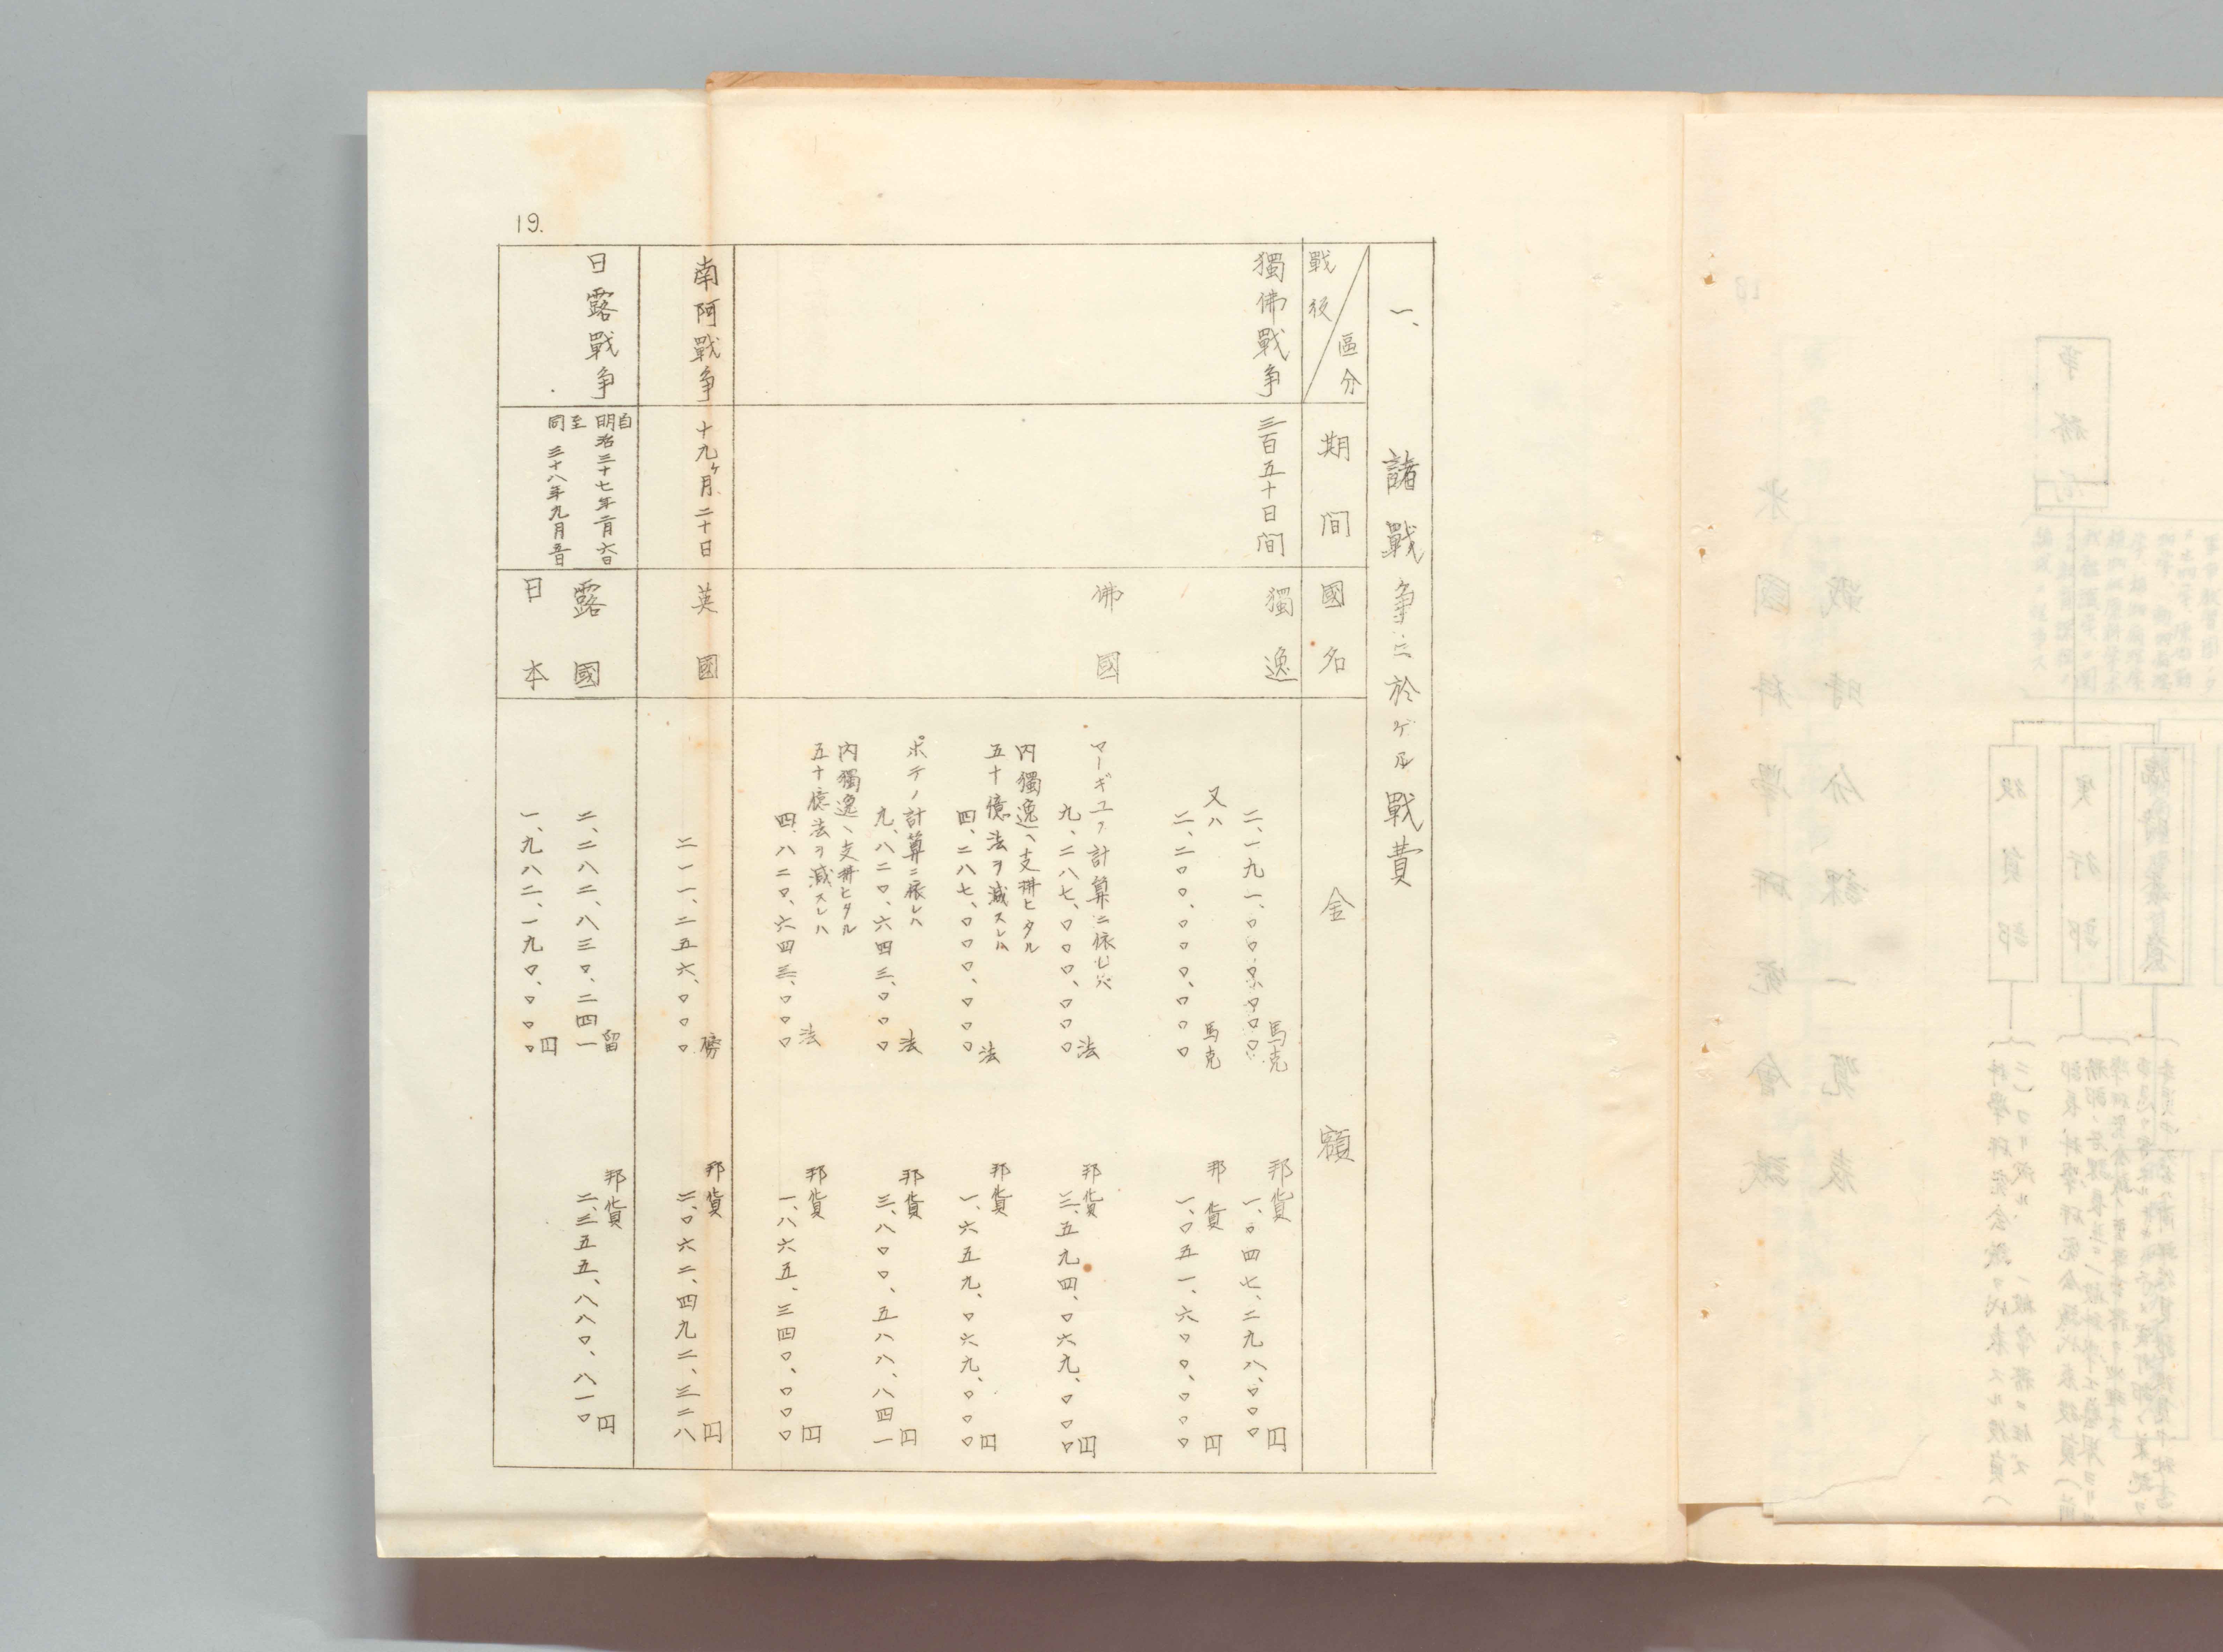 19.
一、諸戰争ニ於ケル戰費
戰役
區分
期間
國名
金額
獨佛戰争
三百五十日间
獨逸
二、一九一、〇〇〇、〇〇〇馬克
邦貨
一、〇四七、二九八、〇〇〇円
又ハ
二、二〇〇、〇〇〇、〇〇〇馬克
邦貨
一、〇五一、六〇〇、〇〇〇円
佛國
マーギユノ計算ニ依レハ
九、二八七、〇〇〇、〇〇〇法
邦貨
三、五九四、〇六九、〇〇〇円
内獨逸ヘ支拂ヒタル
五十億法ヲ減スレハ
四、二八七、〇〇〇、〇〇〇法
邦貨
一、六五九、〇六九、〇〇〇円
ボテノ計算ニ依レハ
九、八二〇、六四三、〇〇〇法
邦貨
三、八〇〇、五八八、八四一円
内獨逸ヘ支拂ヒタル
五十億法ヲ減スレハ
四、八二〇、六四三、〇〇〇法
邦貨
一、八六五、三四〇、〇〇〇円
南阿戰争
十九ヶ月二十日
英國
二一一、二五六、〇〇〇磅
邦貨
二、〇六二、四九二、三二八円
日露戰争
自
明治三十七年二月六日
至
同三十八年九月五日
露國
二、二八二、八三〇、二四一留
邦貨
二、三五五、八八〇、八一〇円
日本
一、九八二、一九〇、〇〇〇円